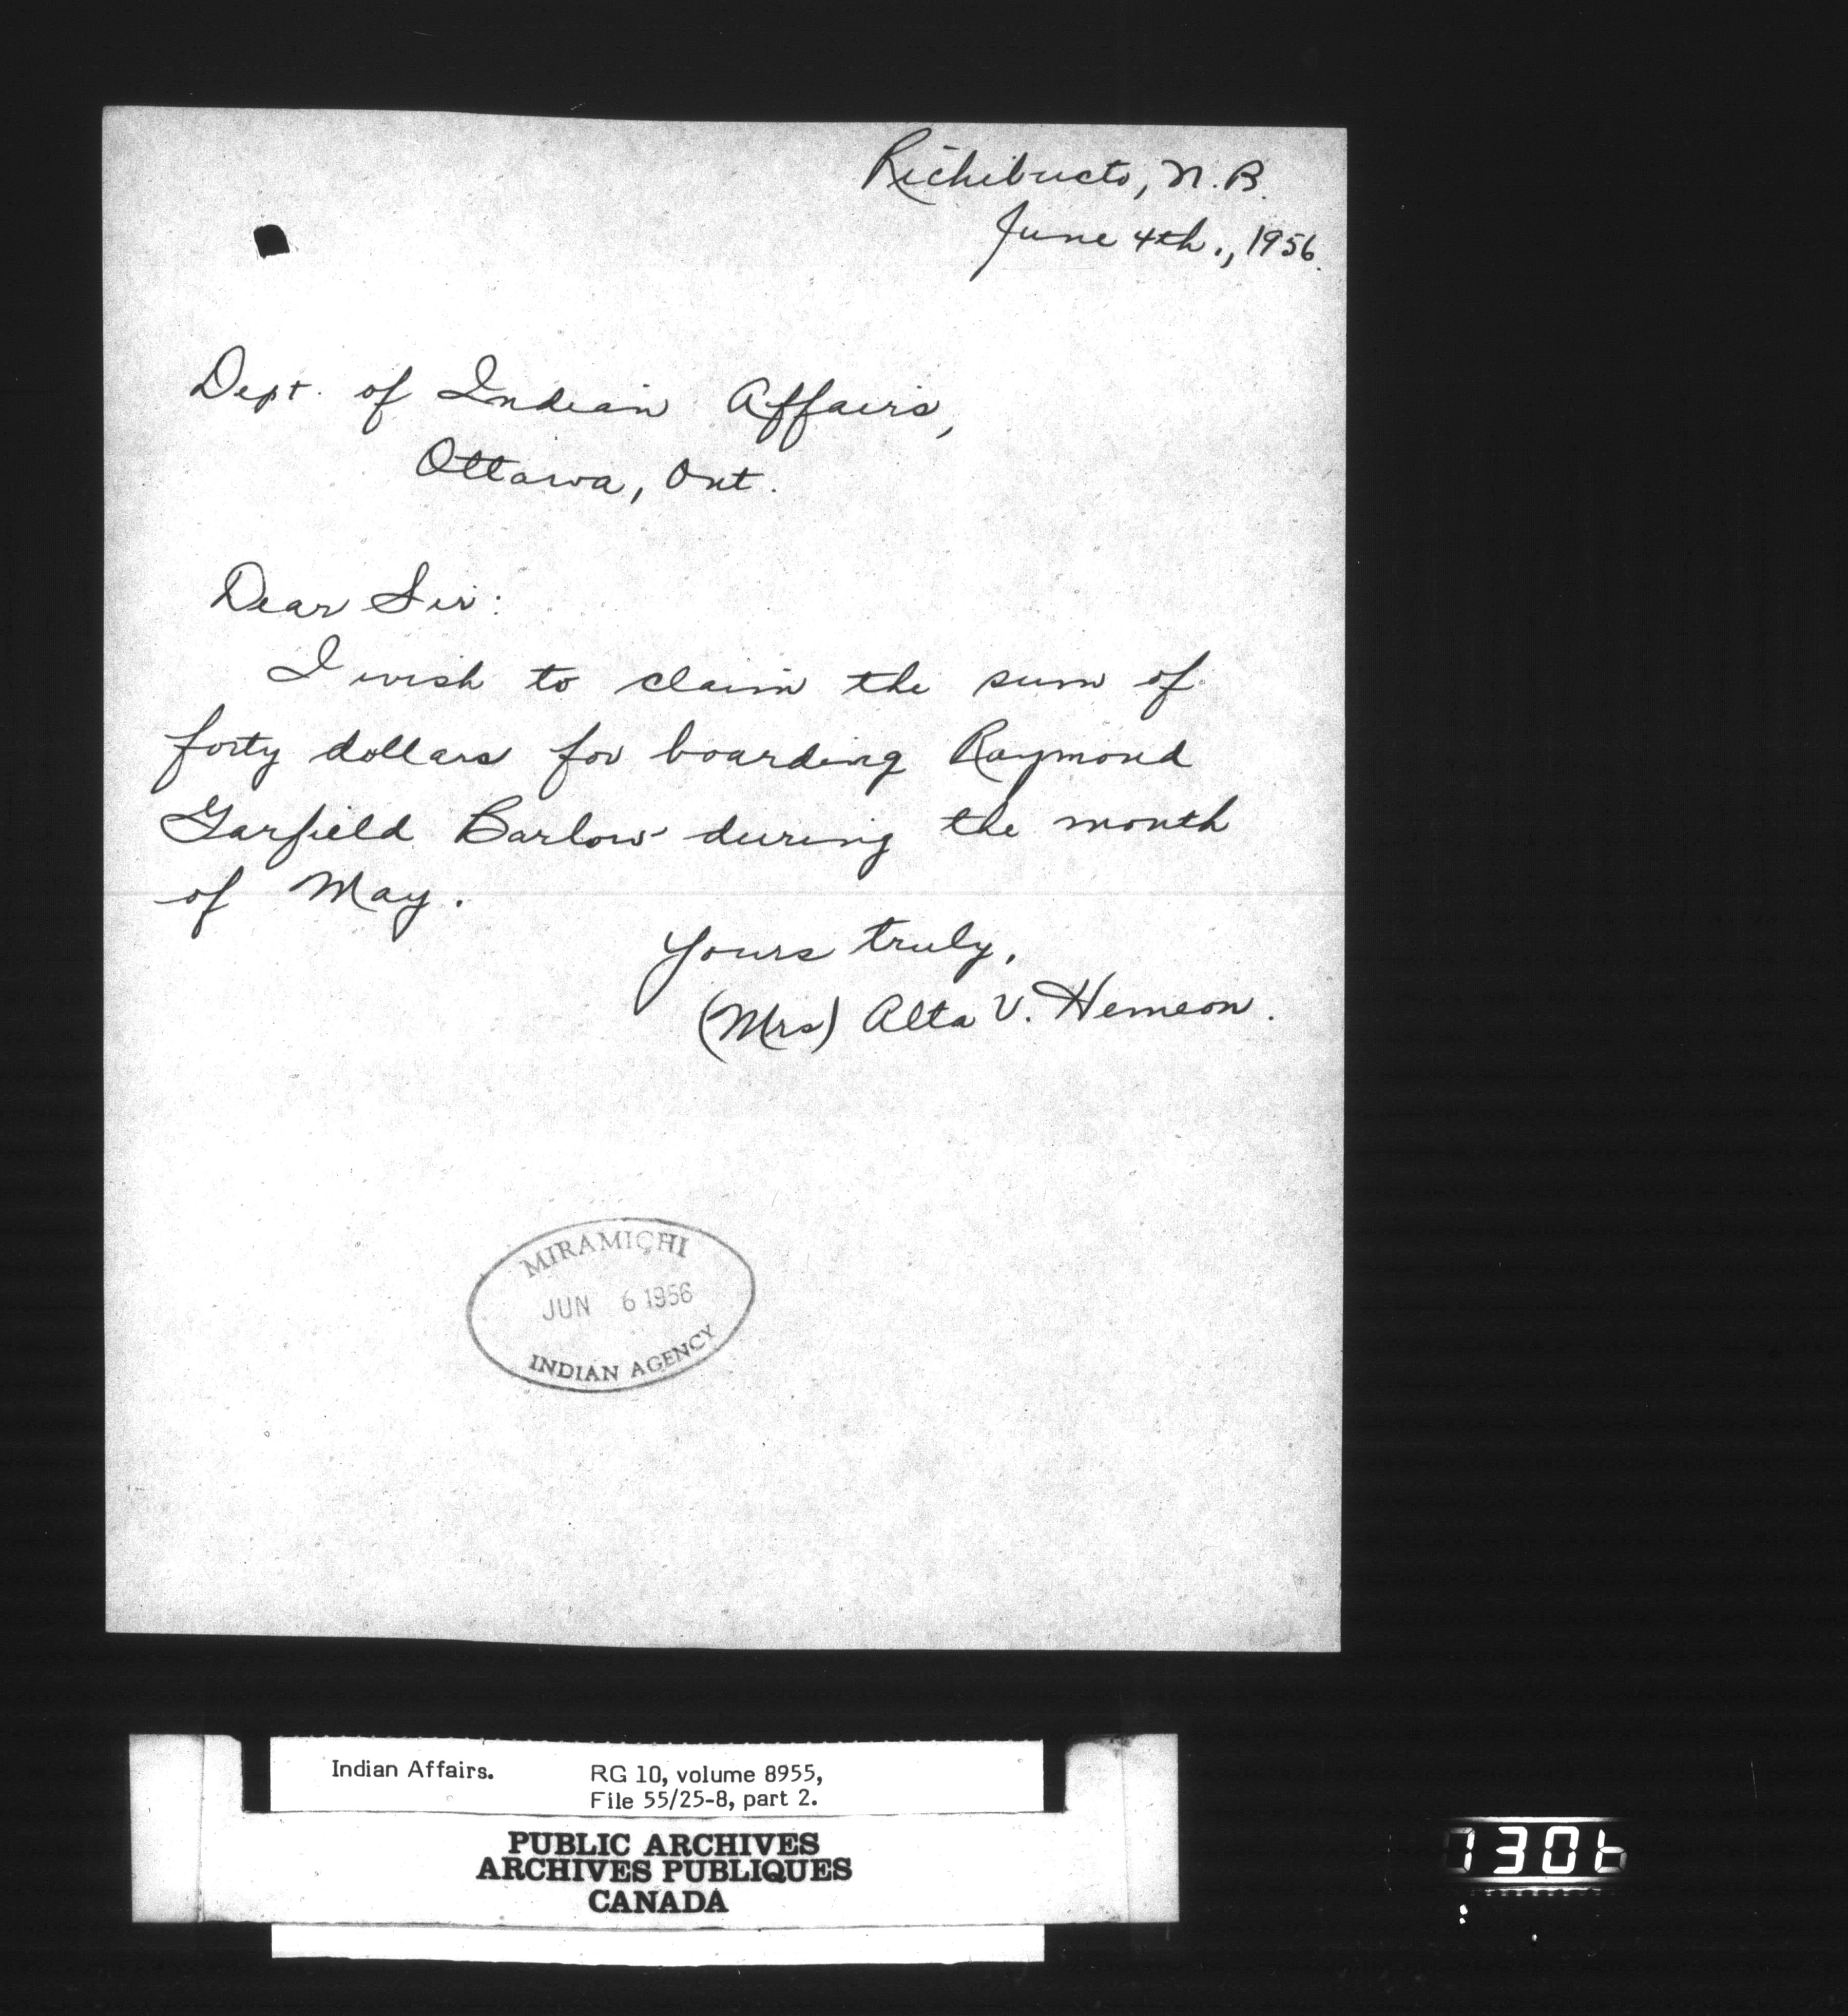 Richibucto, N.B.
June 4th., 1956.
Dept. of Indian Affairs,
Ottawa, Ont.
Dear Sir:
I wish to claim the sum of
forty dollars for boarding Raymond
Garfield Barlow during the month
of May.
Yours truly,
(Mrs) Alta V. Hemeon.
MIRAMICHI
JUN 6 1956
INDIAN AGENCY
Indian Affairs. RG 10, volume 8955,
File 55/25-8, part 2.
PUBLIC ARCHIVES
ARCHIVES PUBLIQUES
CANADA